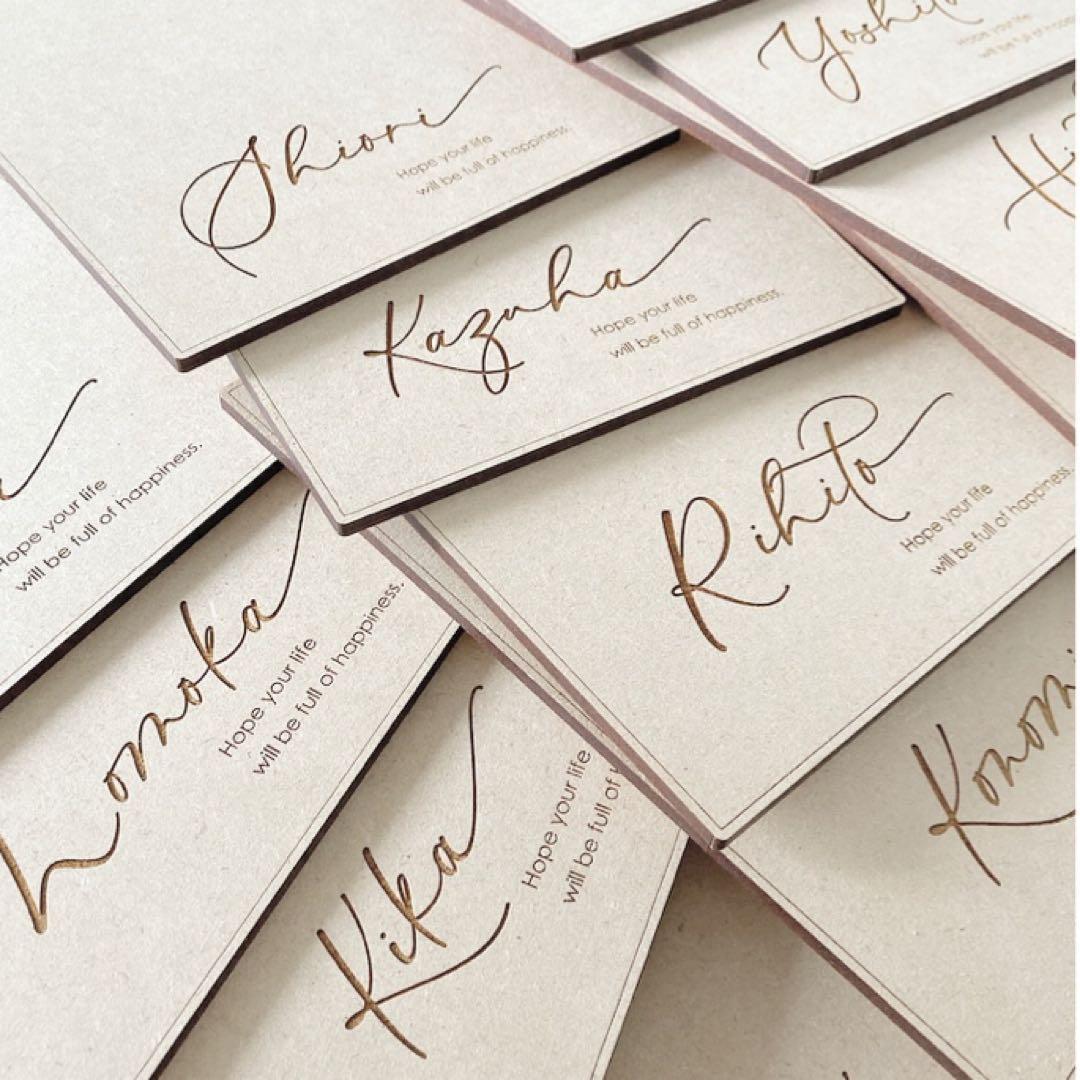 Yoshito
Hope your life
Shiori
Hope your life
will be full of happiness.
Kazuha
Hope your life
will be full of happiness.
Rihito
Hope your life
will be full of happiness.
Hope your life
will be full of happiness.
Honoka
Hope your life
will be full of happiness.
Kika
Hope your life
will be full of
Konomi